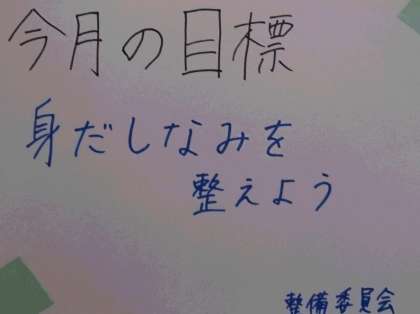 今月の目標
身だしなみを
整えよう
整備委員会